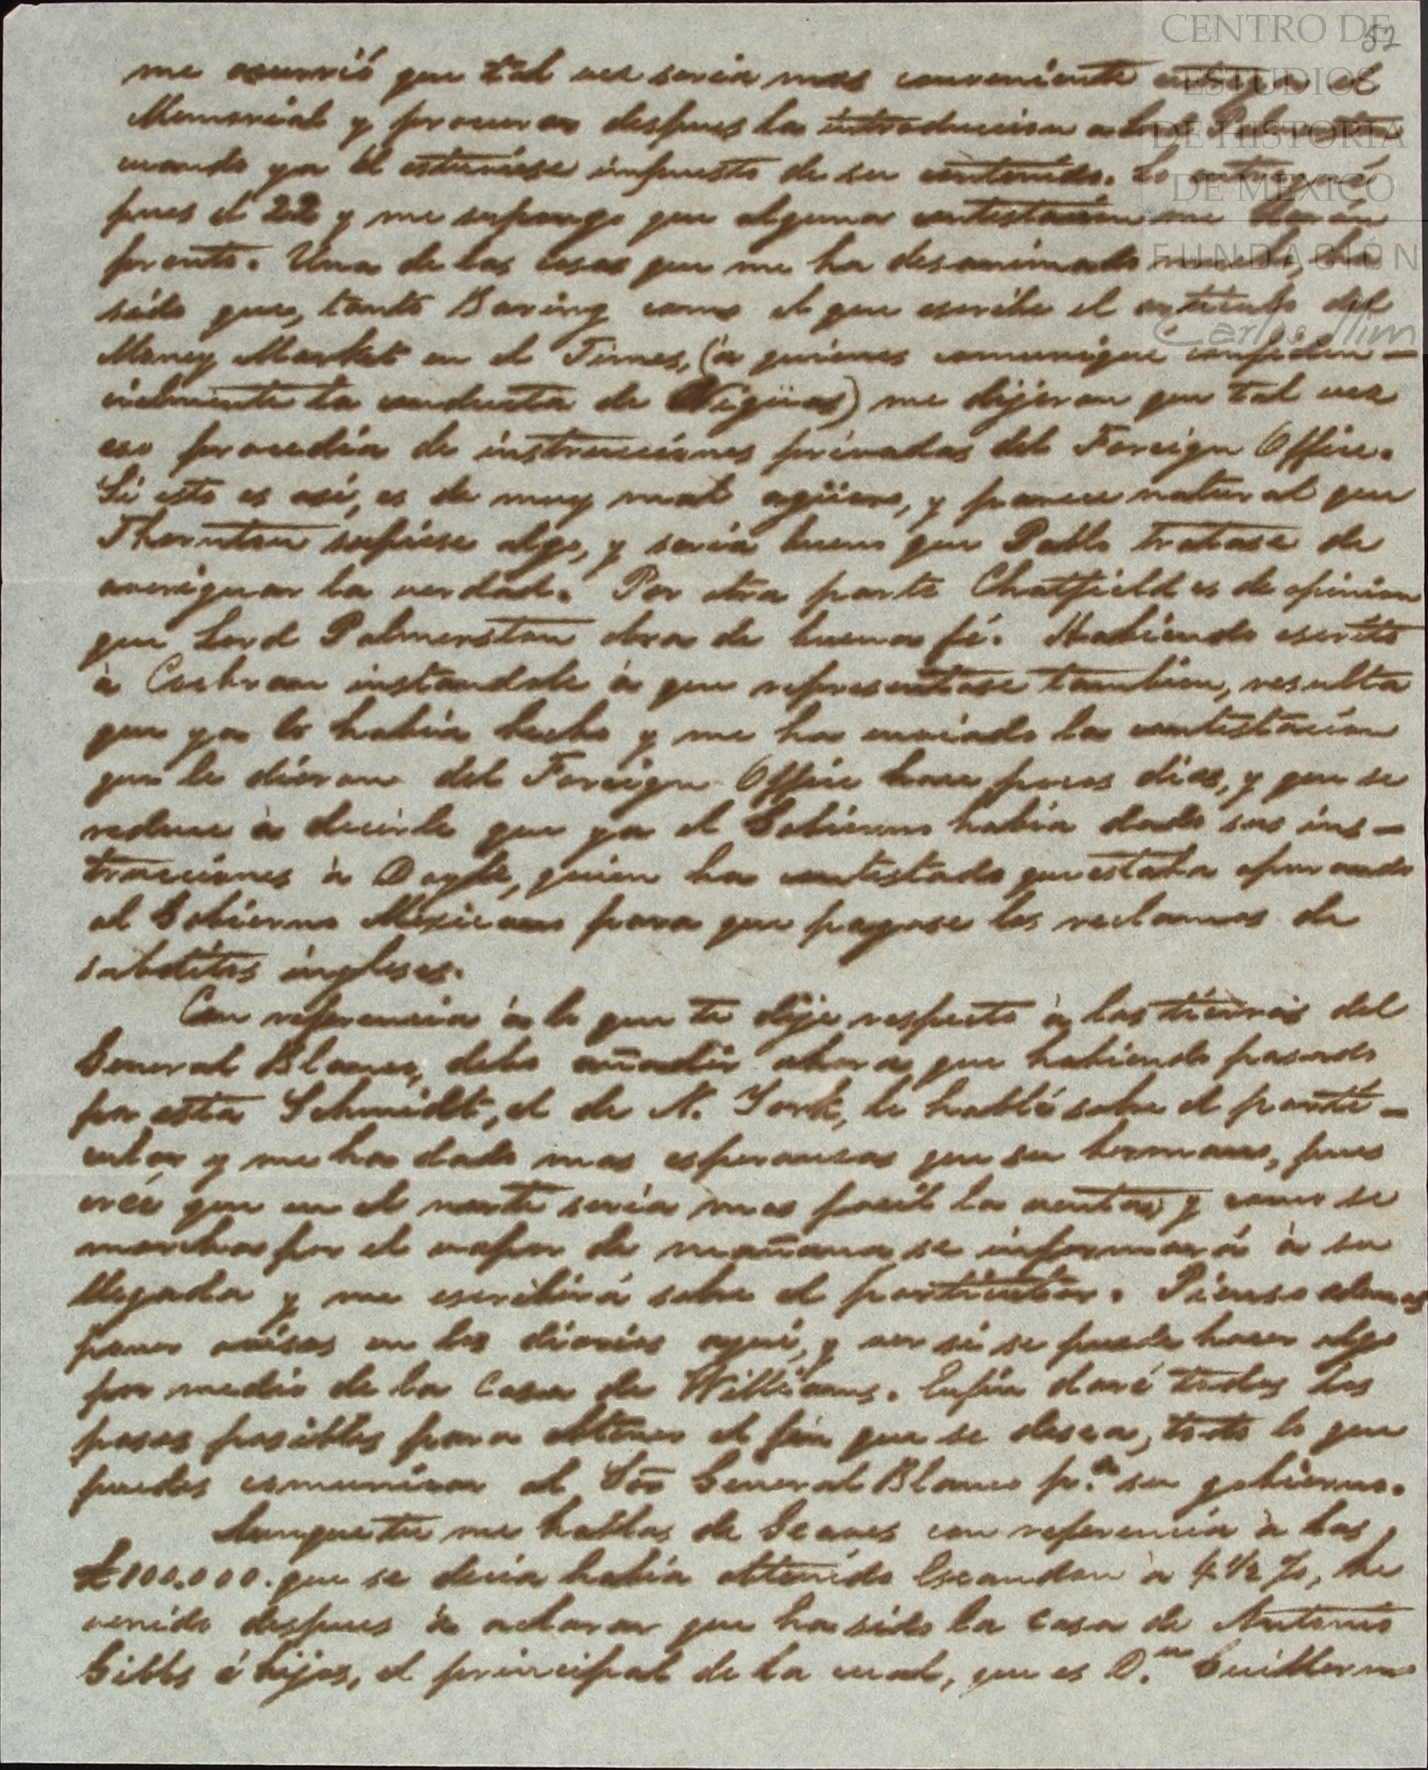 CENTRO DE
ESTUDIOS
DE HISTORIA
DE MÉXICO
FUNDACIÓN
Carlos Slim
52
me ocurrió que tal vez seria mas conveniente entregar el
Memorial y procurar despues la introduccion a Lord Palmerston
cuando ya él estuviese impuesto de su contenido. Lo entregué
pues el 22 y me supongo que alguna contestacion me darán
pronto. Una de las cosas que me ha desanimado mucho, ha
sido que, tanto Baring como el que escribe el articulo del
Money Market en el Times, (à quienes comuniqué confiden-
cialmente la conducta de) me dijeron que tal vez
eso procedia de instrucciones privadas del Foreign Office.
Si esto es así, es de muy mal agüero, y parece natural que
Thornton supiese algo, y seria bueno que Pablo tratase de
averiguar la verdad. Por otra parte Chatfield es de opinion
que Lord Palmerston obra de buena fé. Habiendo escrito
à Cochran instandole à que representase tambien, resulta
que ya lo habia hecho y me ha enviado la contestacion
que le dieron del Foreign Office hace pocos dias, y que se
reduce à decirle que ya el Gobierno habia dado sus ins-
trucciones à Doyle, quien ha contestado que estaba apurando
al Gobierno Mexicano para que pagase los reclamos de
subditos ingleses.
Con referencia à lo que te dije respecto à las tierras del
General Blanco, debo añadir ahora que habiendo pasado
por esta Schmidt, el de N. York, le hablé sobre el parti-
cular y me ha dado mas esperanzas que su hermano, pues
creé que en el norte seria mas facil la venta, y como se
marcha por el vapor de mañana se informará à su
llegada y me escribirá sobre el particular. Pienso ademas
poner avisos en los diarios aquí, y ver si se puede hacer algo
por medio de la Casa de Williams. Enfin daré todos los
pasos posibles para obtener el fin que se desea, todo lo que
puedes comunicar al Sor General Blanco pa. su gobierno.
Aunque tu me hablas de Geaves con referencia à las
£100.000. que se decia habia obtenido Escandon à 4 1/2 %, he
venido despues à aclarar que ha sido la casa de Antonio
Gibbs é hijos, el principal de la cual, que es D.n Guillermo